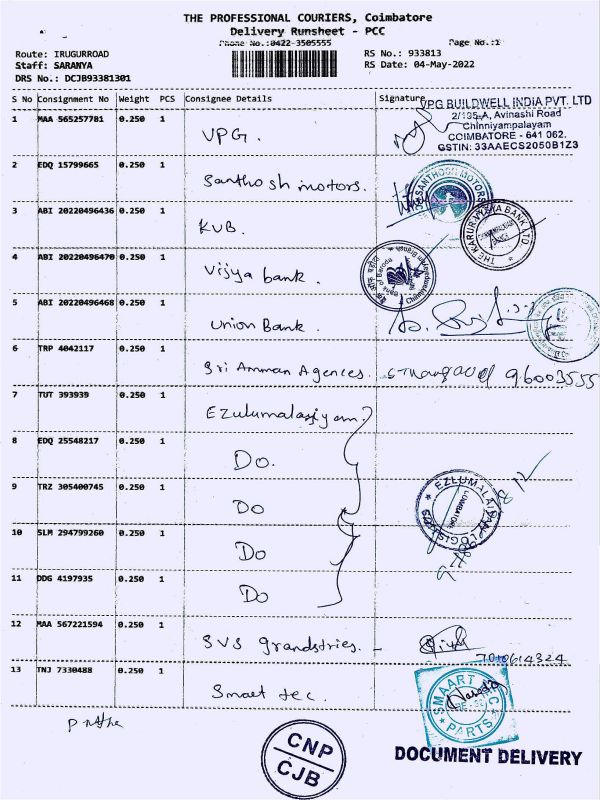 THE PROFESSIONAL COURIERS, Coimbatore
Delivery Runsheet - PCC
Phone No.:0422-3505555
Page No.:1
Route: IRUGURROAD
Staff: SARANYA
DRS No.: DCJB93381301
RS No.: 933813
RS Date: 04-May-2022
S No Consignment No Weight PCS Consignee Details Signature
1 MAA 565257781 0.250 1 VPG.
VPG BUILDWELL INDIA PVT. LTD
2/135-A, Avinashi Road
Chinniyampalayam
COIMBATORE - 641 062.
GSTIN: 33AAECS2050B1Z3
2 EDQ 15799665 0.250 1 Santhosh motors.
SANTHOSH MOTORS
3 ABI 20220496436 0.250 1 KVB.
THE KARUR VYSYA BANK LTD.
4 ABI 20220496470 0.250 1 Vijya bank.
Bank of Baroda
Chinniyampalayam
5 ABI 20220496468 0.250 1 Union Bank.
6 TRP 4042117 0.250 1 Sri Amman Agences. 96003555
7 TUT 393939 0.250 1 Ezulumalaiyan
8 EDQ 25548217 0.250 1 Do.
9 TRZ 305400745 0.250 1 Do
EZLUMALAIYAN LOGISTICS
COIMBATORE
10 SLM 294799260 0.250 1 Do
11 DDG 4197935 0.250 1 Do
12 MAA 567221594 0.250 1 SVS grandstries. -
7010614324
13 TNJ 7330488 0.250 1 Smaet tec.
SMAART
PARTS
CNP
CJB
DOCUMENT DELIVERY